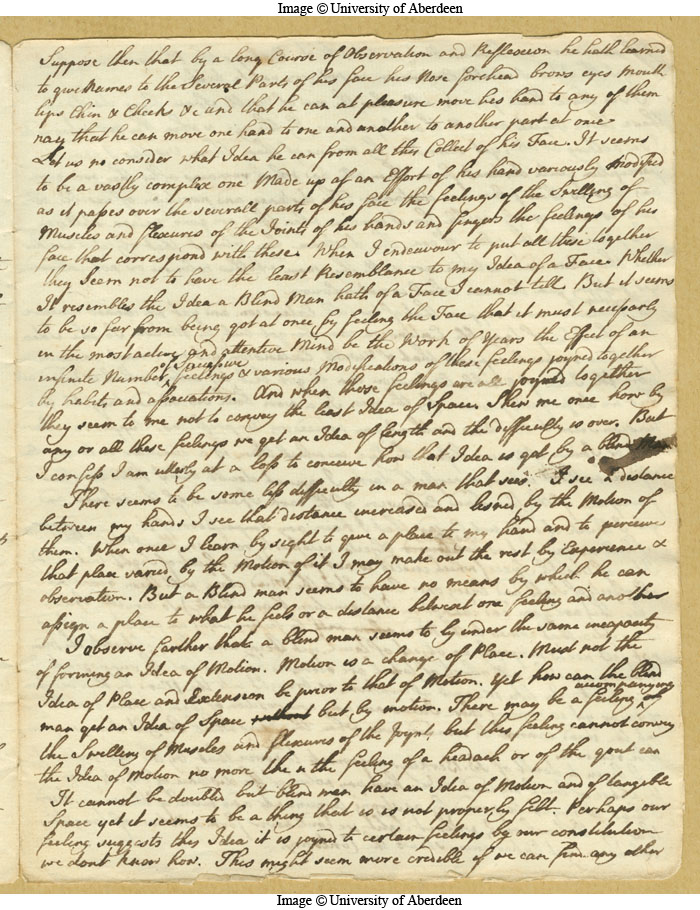 Image © University of Aberdeen
Suppose then that by a long Course of Observation and Reflexion he hath learned
to give Names to the Several Parts of his face his Nose forehead brows eyes mouth
lips Chin & Cheeks &c and that he can at pleasure move his hand to any of them
nay that he can move one hand to one and another to another part at once.
Let us no consider what Idea he can from all this Collect of his Face. It seems
to be a vastly complex one Made up of an Effort of his hand variously modified
as it passes over the severall parts of his face the feelings of the Swelling of
Muscles and flexures of the Joints of his hands and fingers the feelings of his
face that correspond with these. When I endeavour to put all these together
they seem not to have the least Resemblance to my Idea of a Face. Whether
It resembles the Idea a Blind Man hath of a Face I cannot tell. But it seems
to be so far from being got at once by feeling the Face that it must necessarly
in the most active and attentive Mind be the Work of Years the Effect of an
infinite Number of Successive feelings & various Modifications of these feelings joyned together
by habits and associations. And when those feelings are all joyned together
they seem to me not to convey the least Idea of Space. Shew me once how by
any or all these feelings we get an Idea of length and the difficulty is over. But
I confess I am utterly at a loss to conceive how that Idea is got by a blind Man
There seems to be some less difficulty in a man that sees. I see a distance
between my hands I see that distance increased and lesned by the Motion of
them. When once I learn by sight to give a place to my hand and to perceive
that place varied by the Motion of it I may make out the rest by Experience &
observation. But a Blind man seems to have no means by which he can
assign a place to what he feels or a distance betwixt one feeling and another
I observe farther that a blind man seems to ly under the same incapacity
of forming an Idea of Motion. Motion is a change of Place. Must not the
Idea of Place and Extension be prior to that of Motion. Yet how can the blind
man get an Idea of Space but by motion. There may be a feeling accompanying
the Swelling of Muscles and flexures of the Joynts but this feeling cannot convey
the Idea of Motion no more then the feeling of a headach or of the gout can
It cannot be doubted but blind men have an Idea of Motion and of tangible
Space yet it seems to be a thing that is not properly felt. Perhaps our
feeling suggests this Idea it is joyned to certain feelings by our constitution
we dont know how. This might seem more credible if we can find any other
Image © University of Aberdeen